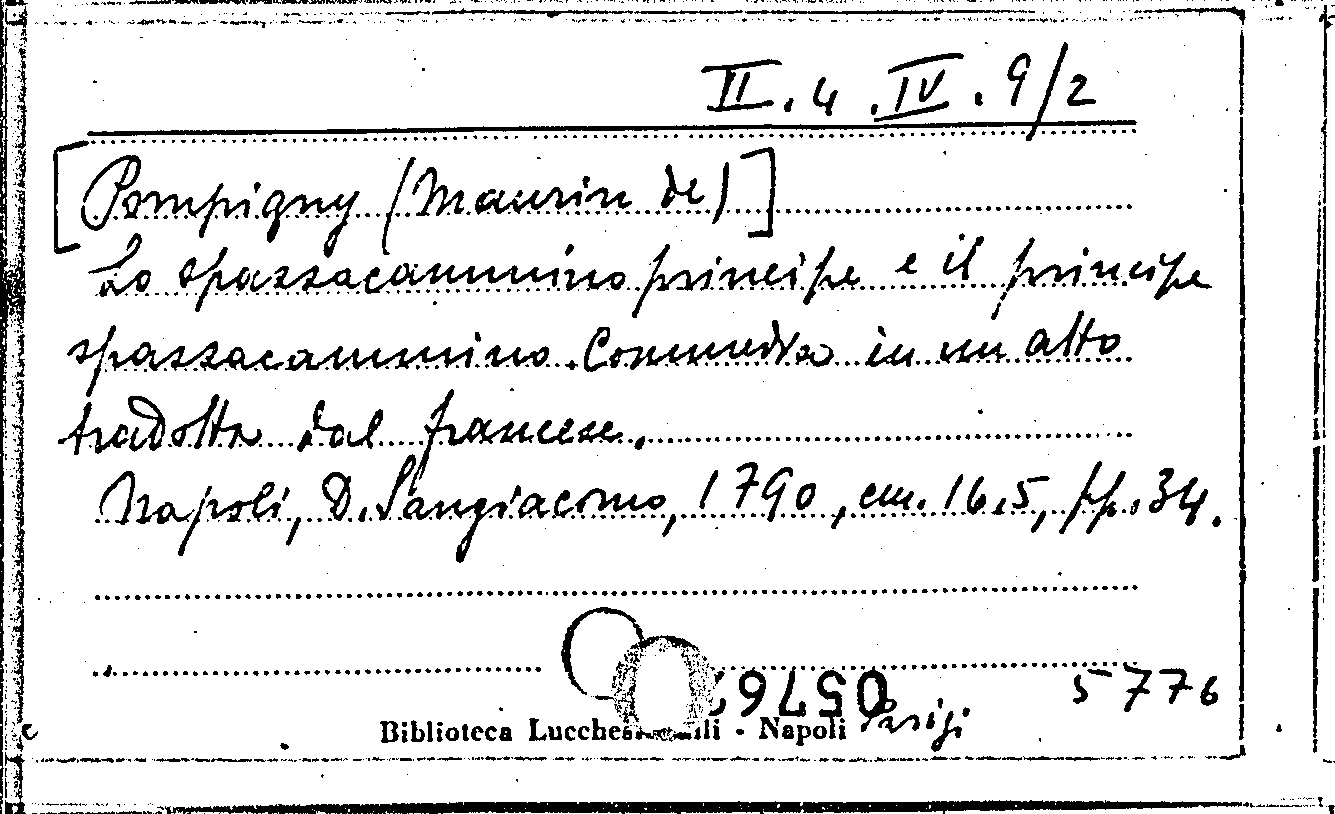 II.4.IV.9/2
[Pompigny (Maurin de)]
Lo spazzacammino principe e il principe
spazzacammino. Commedia in un atto
tradotta dal francese.
Napoli, D. Sangiacomo, 1790, cm. 16.5, pp. 34.
5776
Biblioteca - Napoli Parigi